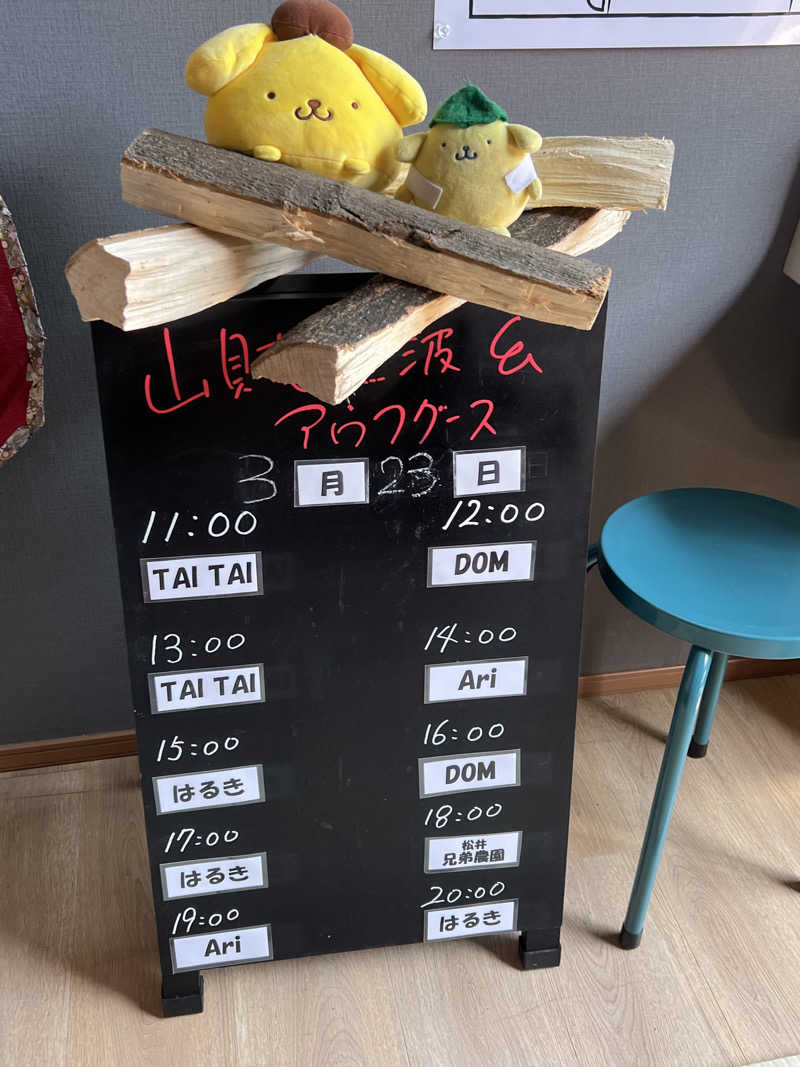 山賊 波 &
アウフグース
3月23日
11:00 12:00
TAI TAI DOM
13:00 14:00
TAI TAI Ari
15:00 16:00
はるき DOM
17:00 18:00
はるき 松井
兄弟農園
19:00 20:00
Ari はるき